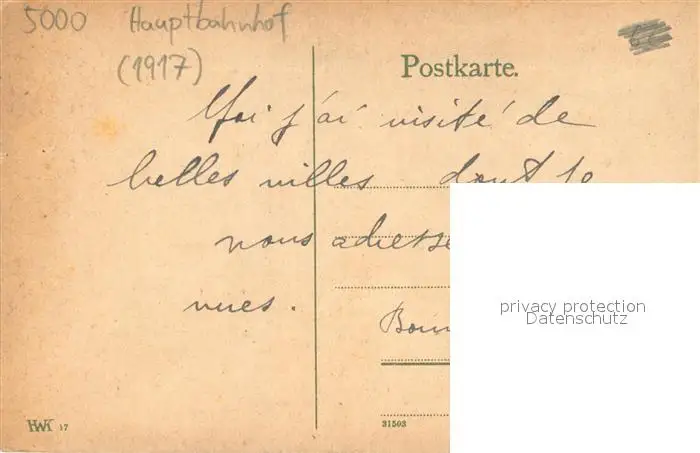 5000 Hauptbahnhof
(1917)
Postkarte.
Moi j'ai visité de
belles villes dont je
vous adresse
vues.
privacy protection
Datenschutz
HWK 17
31503